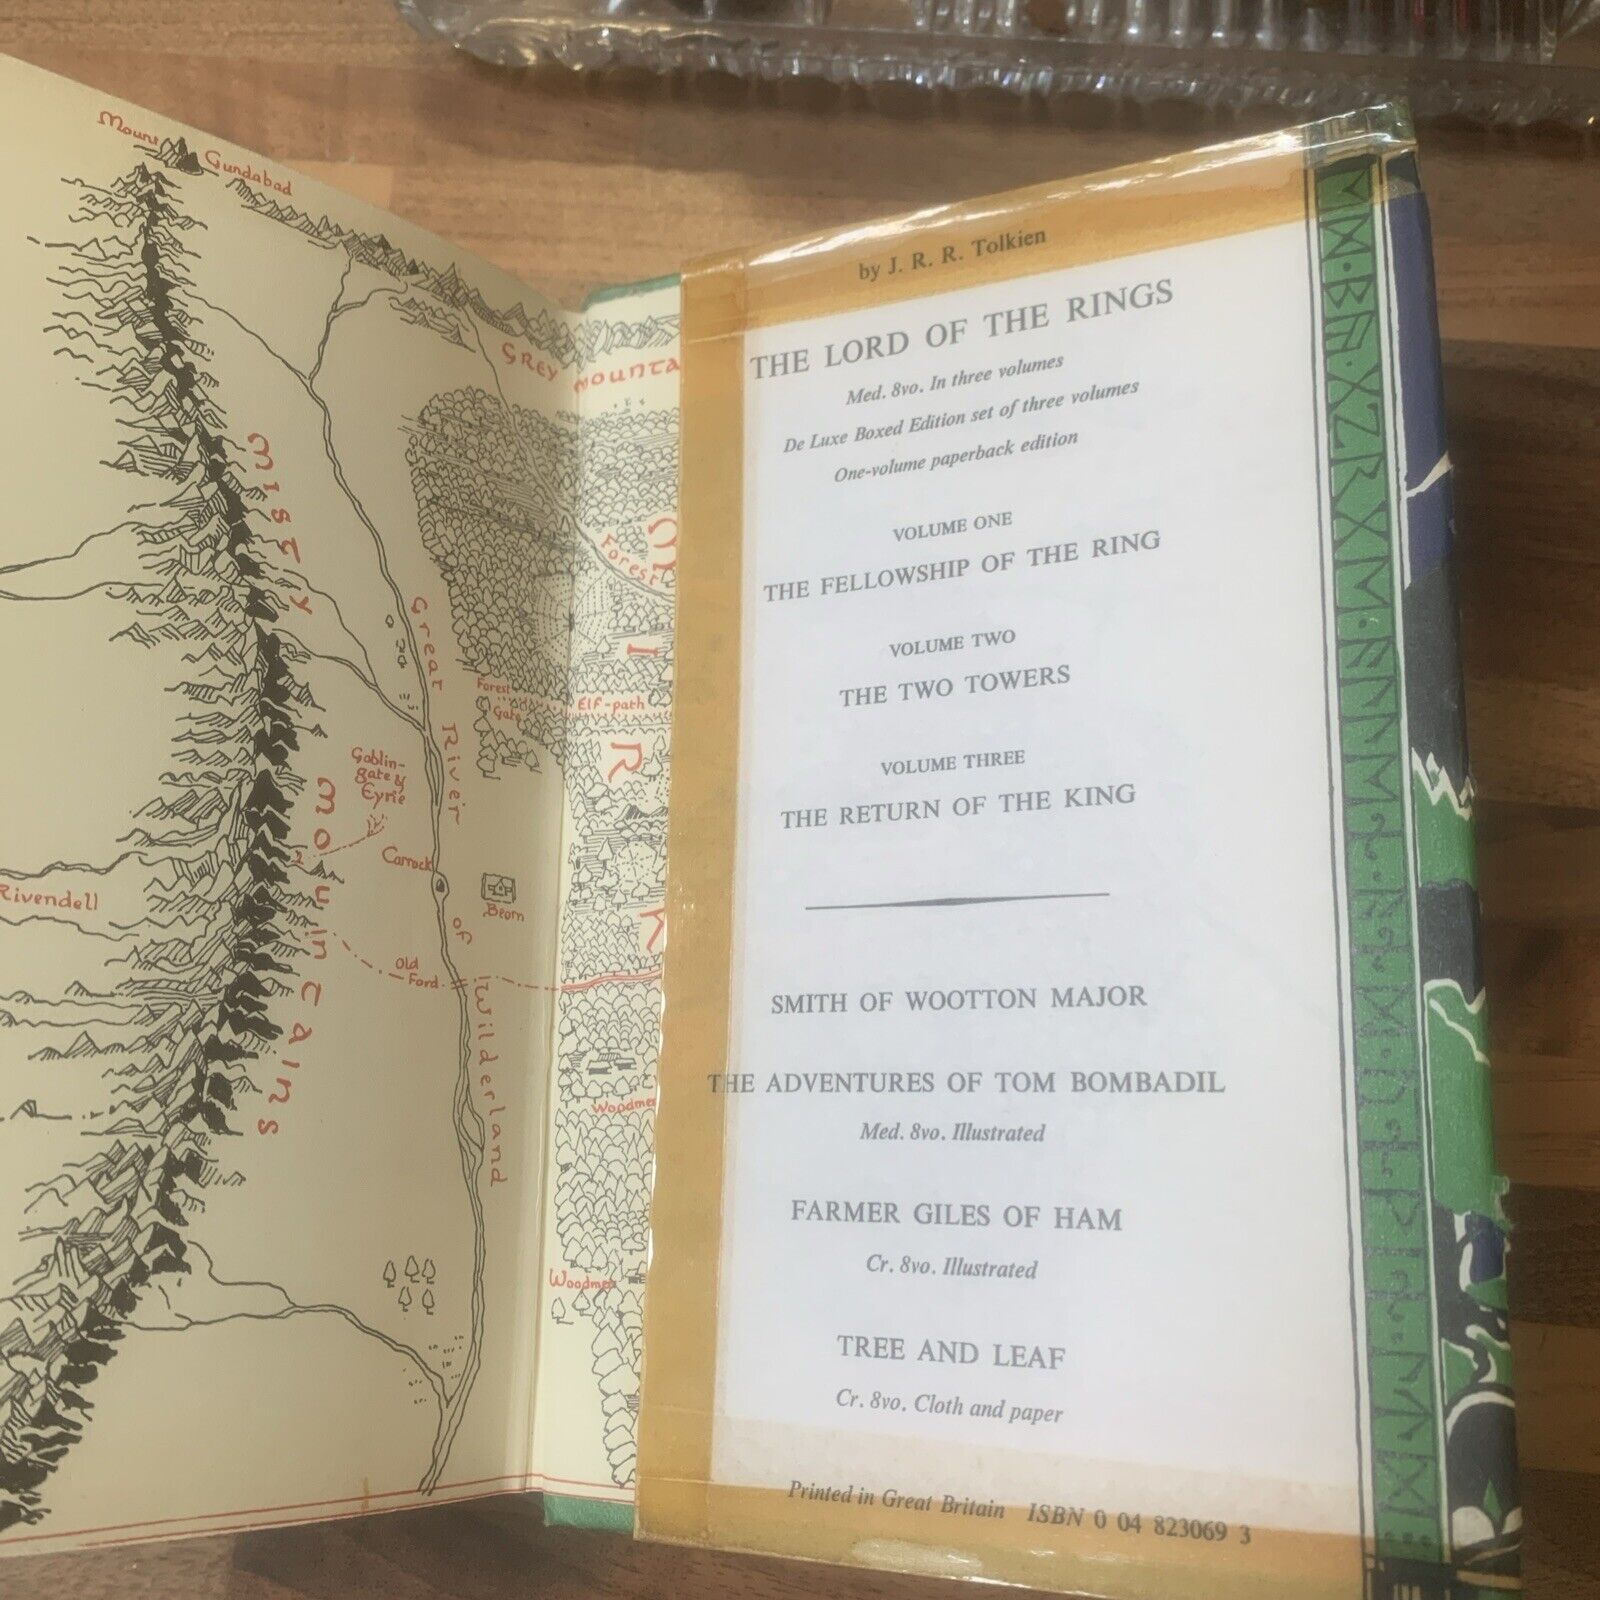 Mount Gundabad
GREY MOUNTA
MISTY MOUNTAINS
Great River of Wilderland
Forest
Forest
Gate
Elf-path
Goblin-
gate &
Eyrie
Carrock
Beorn
Rivendell
Old
Ford
Woodmen
Woodme
by J. R. R. Tolkien
THE LORD OF THE RINGS
Med. 8vo. In three volumes
De Luxe Boxed Edition set of three volumes
One-volume paperback edition
VOLUME ONE
THE FELLOWSHIP OF THE RING
VOLUME TWO
THE TWO TOWERS
VOLUME THREE
THE RETURN OF THE KING
SMITH OF WOOTTON MAJOR
THE ADVENTURES OF TOM BOMBADIL
Med. 8vo. Illustrated
FARMER GILES OF HAM
Cr. 8vo. Illustrated
TREE AND LEAF
Cr. 8vo. Cloth and paper
Printed in Great Britain ISBN 0 04 823069 3